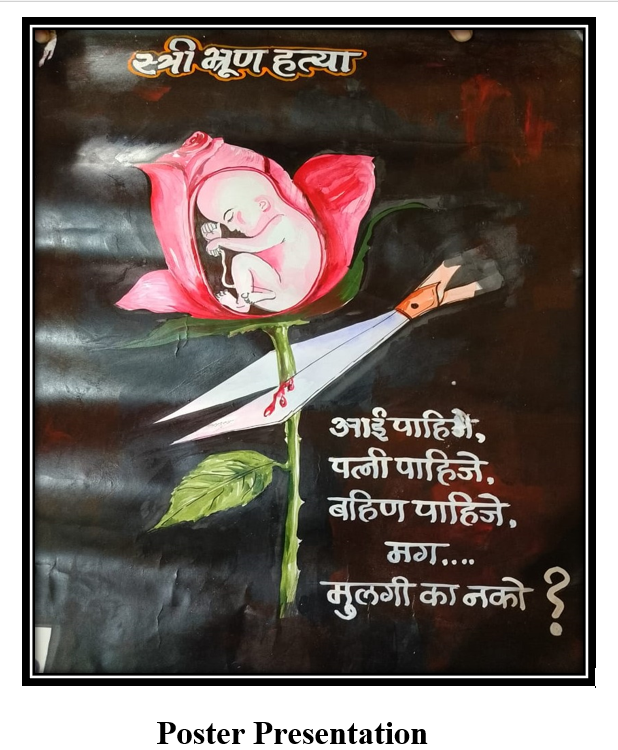 स्त्री भ्रूण हत्या
आई पाहिजे,
पत्नी पाहिजे,
बहिण पाहिजे,
मग....
मुलगी का नको ?
Poster Presentation